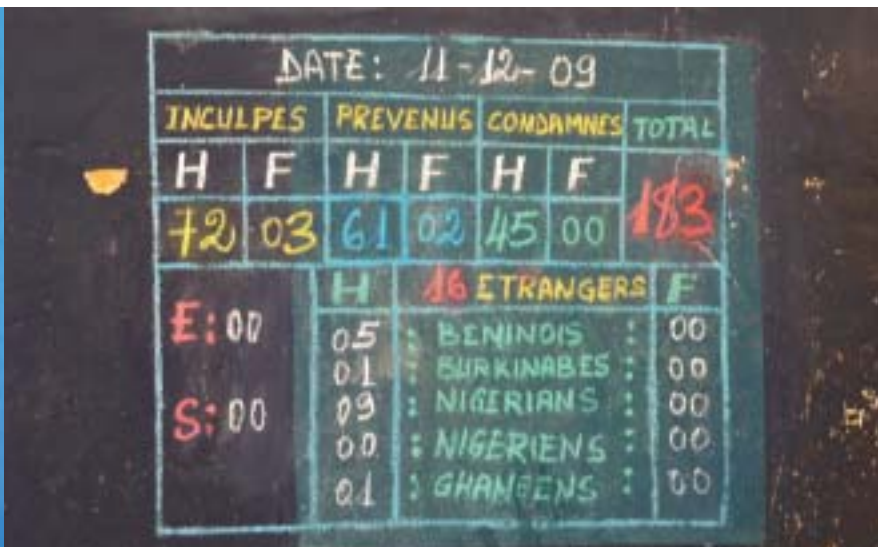 DATE: 11-12-09
INCULPES PREVENUS CONDAMNES TOTAL
H F H F H F
72 03 61 02 45 00 183
H 16 ETRANGERS F
E: 00
S: 00
05 : BENINOIS : 00
01 : BURKINABES : 00
09 : NIGERIANS : 00
00 : NIGERIENS : 00
01 : GHANEENS : 00